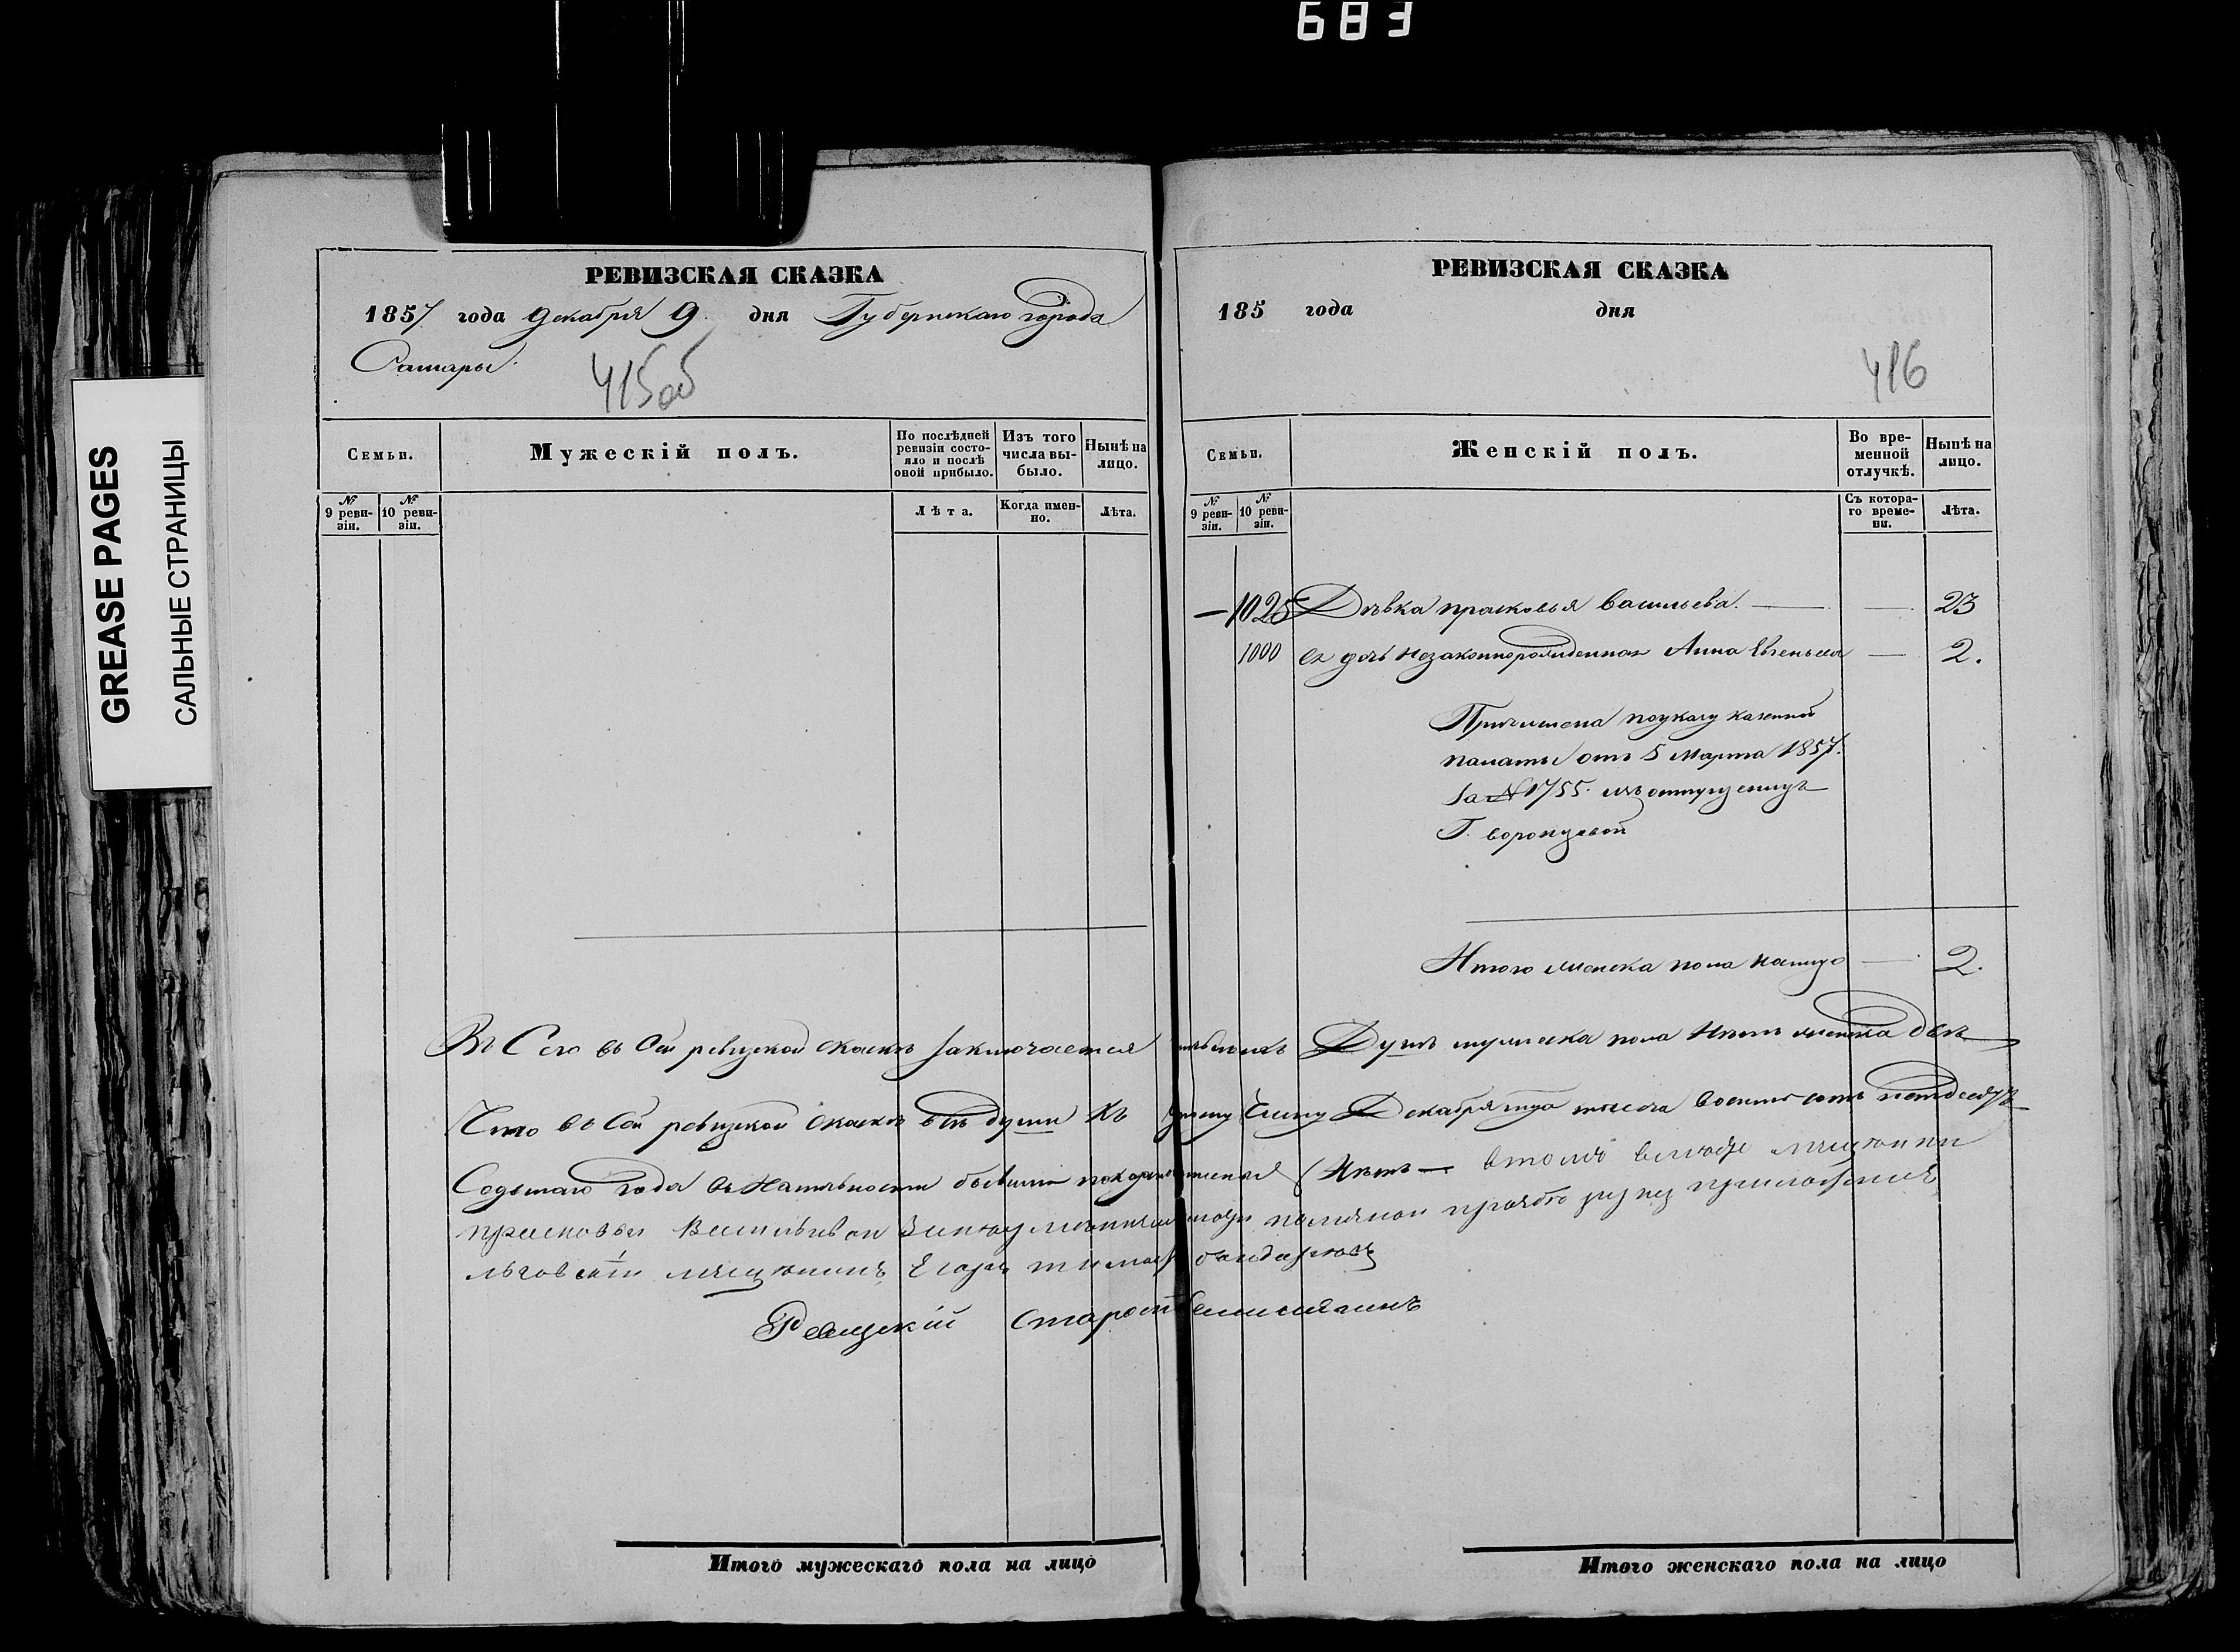 683
GREASE PAGES
САЛЬНЫЕ СТРАНИЦЫ
РЕВИЗСКАЯ СКАЗКА
1857 года Декабря 9 дня Губернскаго города
Самары
415об
Семьи.
Мужескій полъ.
По послѣдней ревизіи состояло и послѣ оной прибыло.
Изъ того числа выбыло.
Нынѣ на лицо.
№ 9 ревизіи.
№ 10 ревизіи.
Лѣта.
Когда именно.
Лѣта.
РЕВИЗСКАЯ СКАЗКА
185 года дня
416
Семьи.
Женскій полъ.
Во временной отлучкѣ.
Нынѣ на лицо.
№ 9 ревизіи.
№ 10 ревизіи.
Съ котораго времени.
Лѣта.
— 1025 Дѣвка прасковья Васильева. — — 23
1000 ея дочь незаконнорожденная Анна — 2.
Причислена по указу казенной
палаты отъ 5 Марта 1857.
за № 1755. изъ отпущенницъ
Г. воронцовой
Итого женска пола налицо — 2.
Въ Сего въ Сей ревизской скаскѣ заключается Душъ мужеска пола Нѣтъ женска двѣ
Что въ Сей ревизской скаскѣ всѣ души къ Декабря тысеча восемь сотъ петдесятъ
Седьмаго года въ Наличности бывыми показаны Нѣтъ —
прасковьи
мѣщенинъ Егоръ
Ревизскій Старост
Итого мужескаго пола на лицо
Итого женскаго пола на лицо